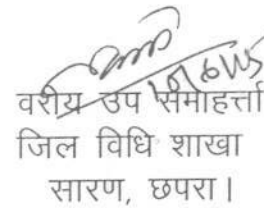 वरीय उप समाहर्त्ता
जिल विधि शाखा
सारण, छपरा।